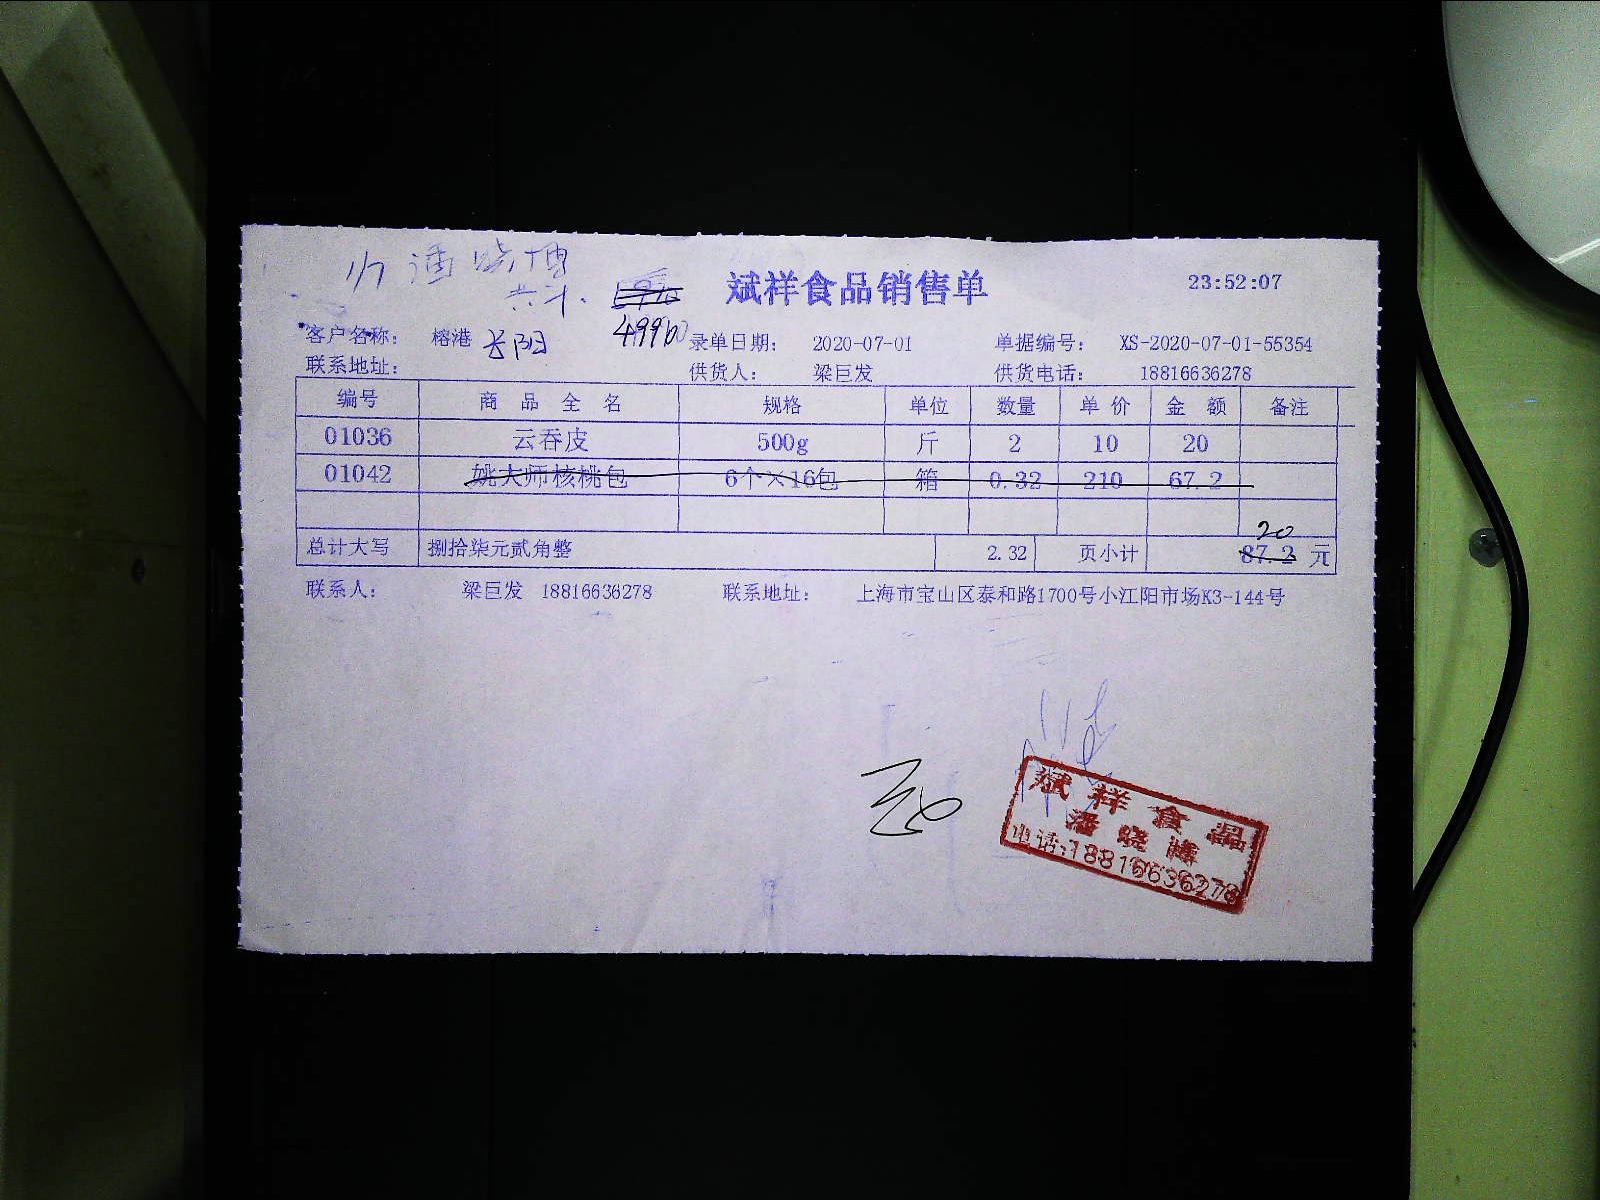 1/7 潘晓博
共计.
斌祥食品销售单 23:52:07
客户名称： 榕港 长阳 录单日期： 2020-07-01 单据编号： XS-2020-07-01-55354
联系地址： 供货人： 梁巨发 供货电话： 18816636278
编号 商 品 全 名 规格 单位 数量 单 价 金 额 备注
01036 云吞皮 500g 斤 2 10 20
01042 姚大师核桃包 6个×16包 箱 0.32 210 67.2
20
总计大写 捌拾柒元贰角整 2.32 页小计 87.2 元
联系人： 梁巨发 18816636278 联系地址： 上海市宝山区泰和路1700号小江阳市场K3-144号
斌祥食品
潘晓博
电话:18816636278